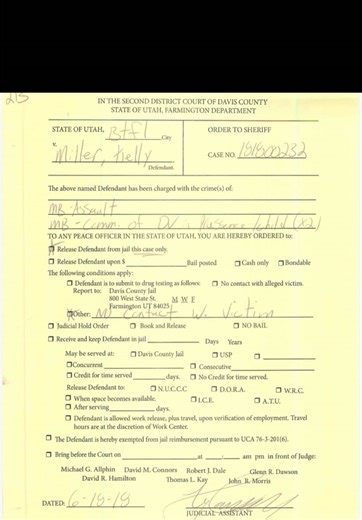 IN THE SECOND DISTRICT COURT OF DAVIS COUNTY
STATE OF UTAH, FARMINGTON DEPARTMENT
STATE OF UTAH, Btfl City
v.
Miller, Kelly
Defendant.
ORDER TO SHERIFF
CASE NO. 181800232
The above named Defendant has been charged with the crime(s) of:
MB-Assault
MB-Comm. of DV in Presence/child (x2)
TO ANY PEACE OFFICER IN THE STATE OF UTAH, YOU ARE HEREBY ORDERED to:
Release Defendant from jail this case only.
Release Defendant upon $ Bail posted Cash only Bondable
The following conditions apply:
Defendant is to submit to drug testing as follows: No contact with alleged victim.
Report to: Davis County Jail
800 West State St. M W F
Farmington UT 84025
Other: No Contact W. Victim
Judicial Hold Order Book and Release NO BAIL
Receive and keep Defendant in jail Days Years
May be served at: Davis County Jail USP
Concurrent Consecutive
Credit for time served days. No Credit for time served.
Release Defendant to: N.U.C.C.C D.O.R.A. W.R.C.
When space becomes available. I.C.E. A.T.U.
After serving days.
Defendant is allowed work release, plus travel, upon verification of employment. Travel
hours are at the discretion of Work Center.
The Defendant is hereby exempted from jail reimbursement pursuant to UCA 76-3-201(6).
Bring before the Court on at : am pm in front of Judge:
Michael G. Allphin David M. Connors Robert J. Dale Glenn R. Dawson
David R. Hamilton Thomas L. Kay John R. Morris
DATED: 6-19-19
JUDICIAL ASSISTANT